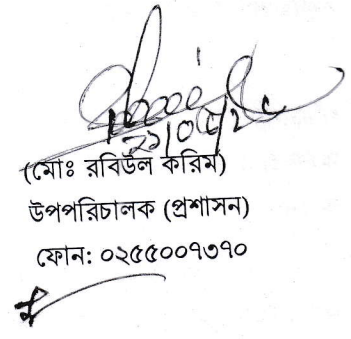 (মোঃ রবিউল করিম)
উপপরিচালক (প্রশাসন)
ফোন: ০২৫৫০০৭৩৭০